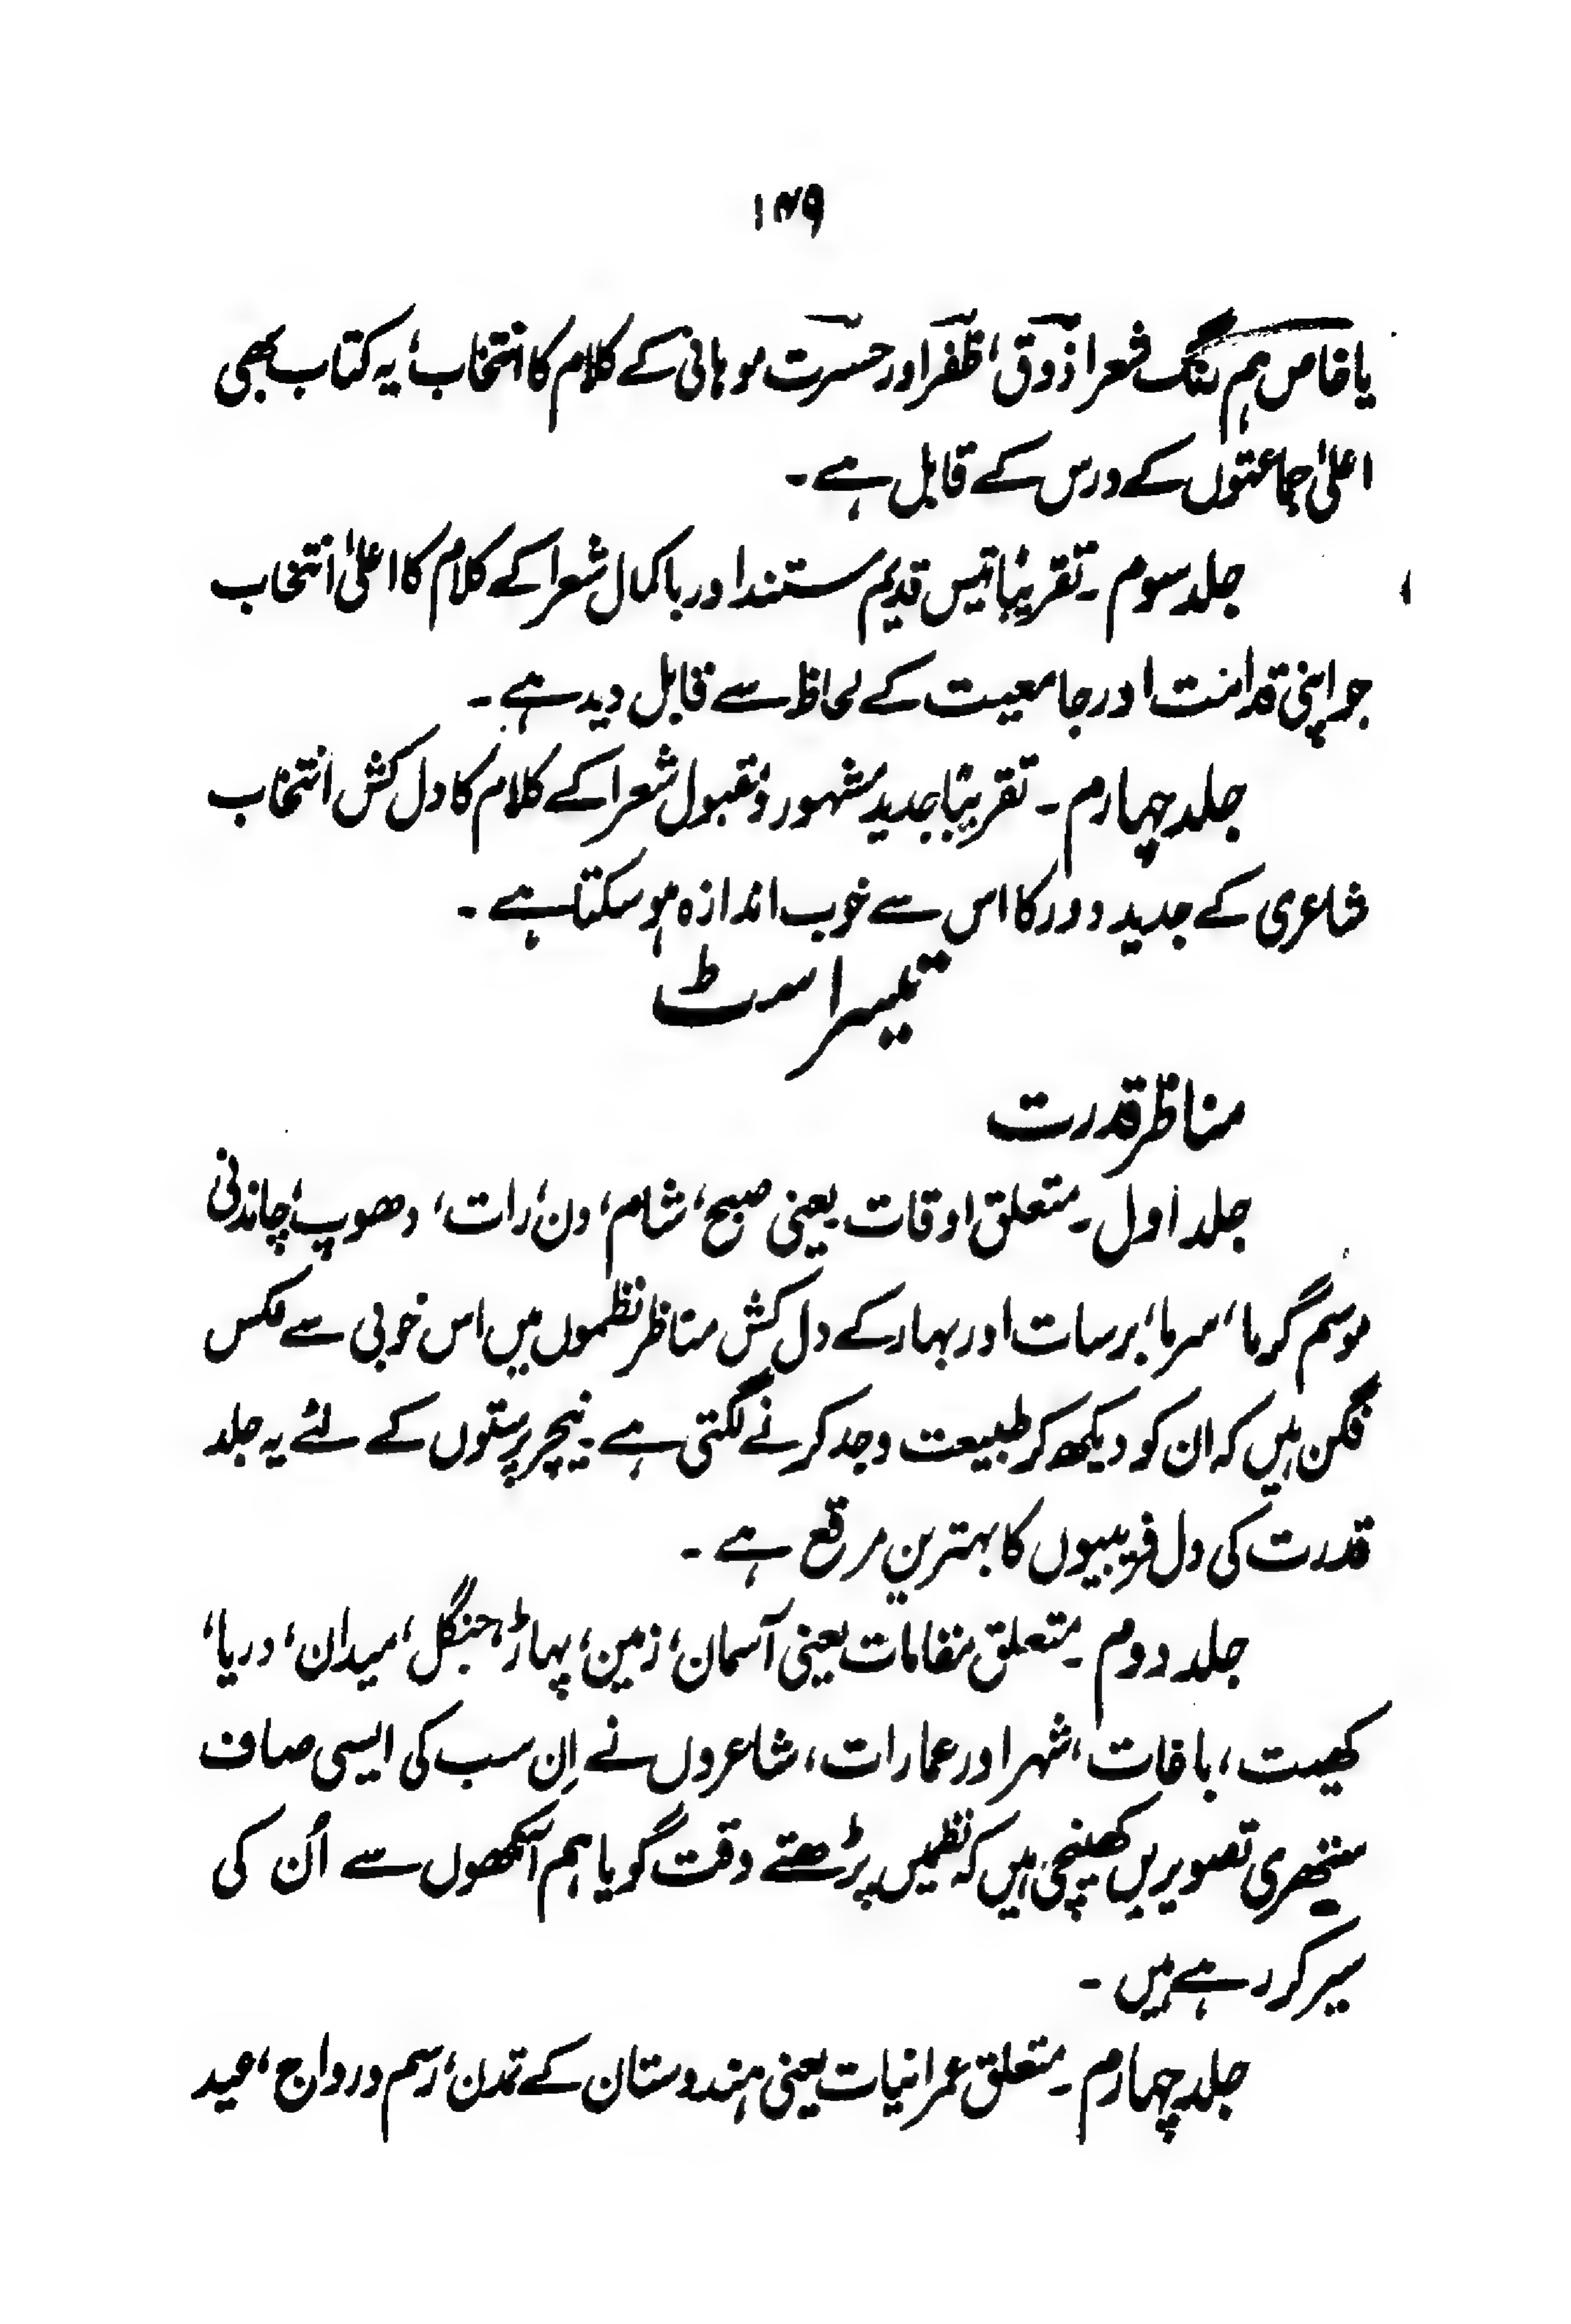 ۱۴۹
یا خاص ہم رنگ شعرا ذوق، ظفر اور حسرت موہانی کے کلام کا انتخاب، یہ کتاب بھی
اعلیٰ جماعتوں کے درس کے قابل ہے۔
جلد سوم۔ تقریبًا تیس قدیم مستند اور باکمال شعرا کے کلام کا اعلیٰ انتخاب
جو اپنی قدامت اور جامعیت کے لحاظ سے قابل دید ہے۔
جلد چہارم۔ تقریبًا جدید مشہور و مقبول شعرا کے کلام کا دل کش انتخاب
شاعری کے جدید دور کا اس سے خوب اندازہ ہو سکتا ہے۔
تیسرا سٹ
مناظر قدرت
جلد اول۔ متعلق اوقات یعنی صبح، شام، دن، رات، دھوپ، چاندنی
موسم گرما، سرما، برسات اور بہار کے دل کش مناظر نظموں میں اس خوبی سے عکس
فگن ہیں کہ ان کو دیکھ کر طبیعت وجد کرنے لگتی ہے۔ نیچر پرستوں کے لئے یہ جلد
قدرت کی دل فریبیوں کا بہترین مرقع ہے۔
جلد دوم۔ متعلق مقامات یعنی آسمان، زمین، پہاڑ، جنگل، میدان، دریا،
کھیت، باغات، شہر اور عمارات، شاعروں نے اِن سب کی ایسی صاف
ستھری تصویریں کھینچی ہیں کہ نظمیں پڑھتے وقت گویا ہم آنکھوں سے اُن کی
سیر کر رہے ہیں۔
جلد چہارم۔ متعلق عمرانیات یعنی ہندوستان کے تمدن، رسم و رواج، عید